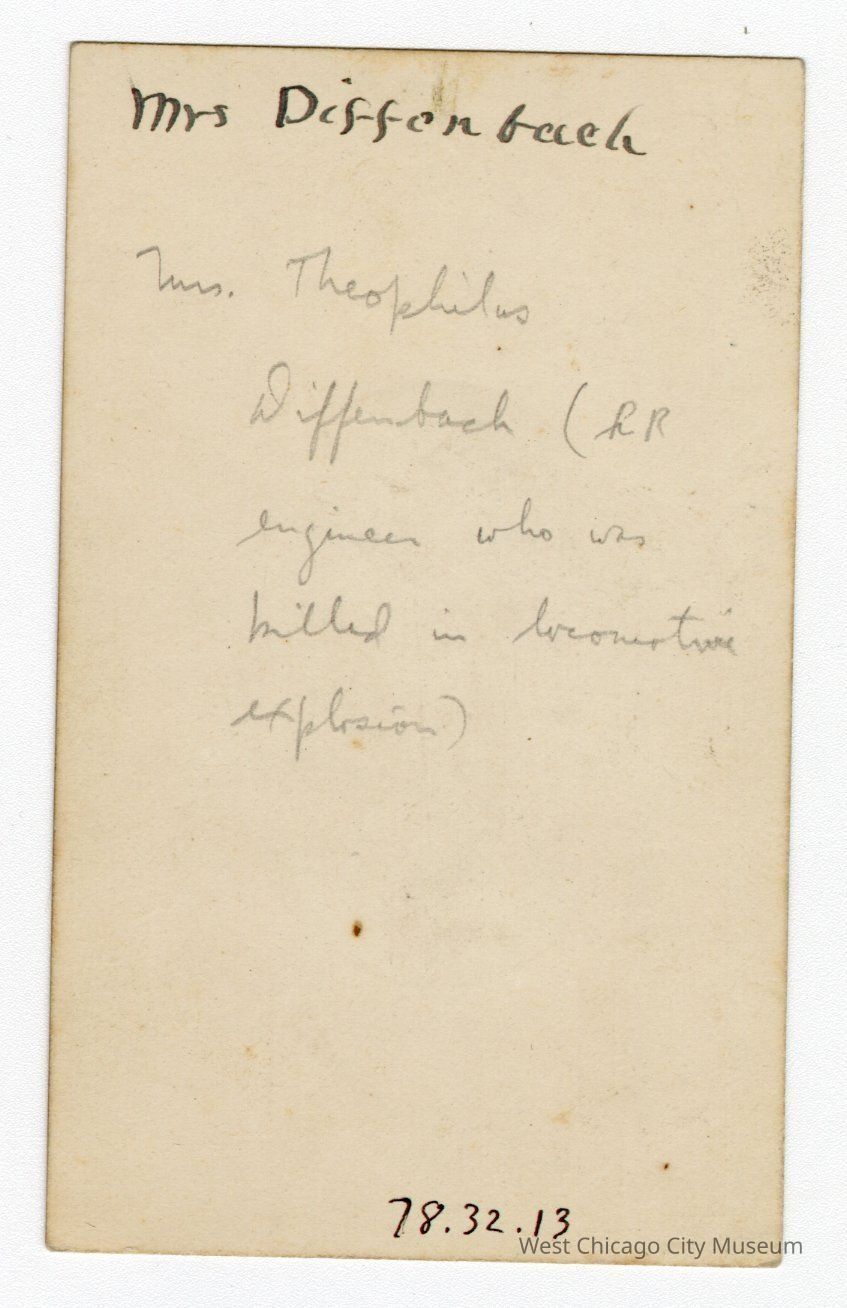 Mrs Diffenbach
Mrs. Theophilus
Diffenbach (RR
engineer who was
killed in locomotive
explosion)
78.32.13
West Chicago City Museum